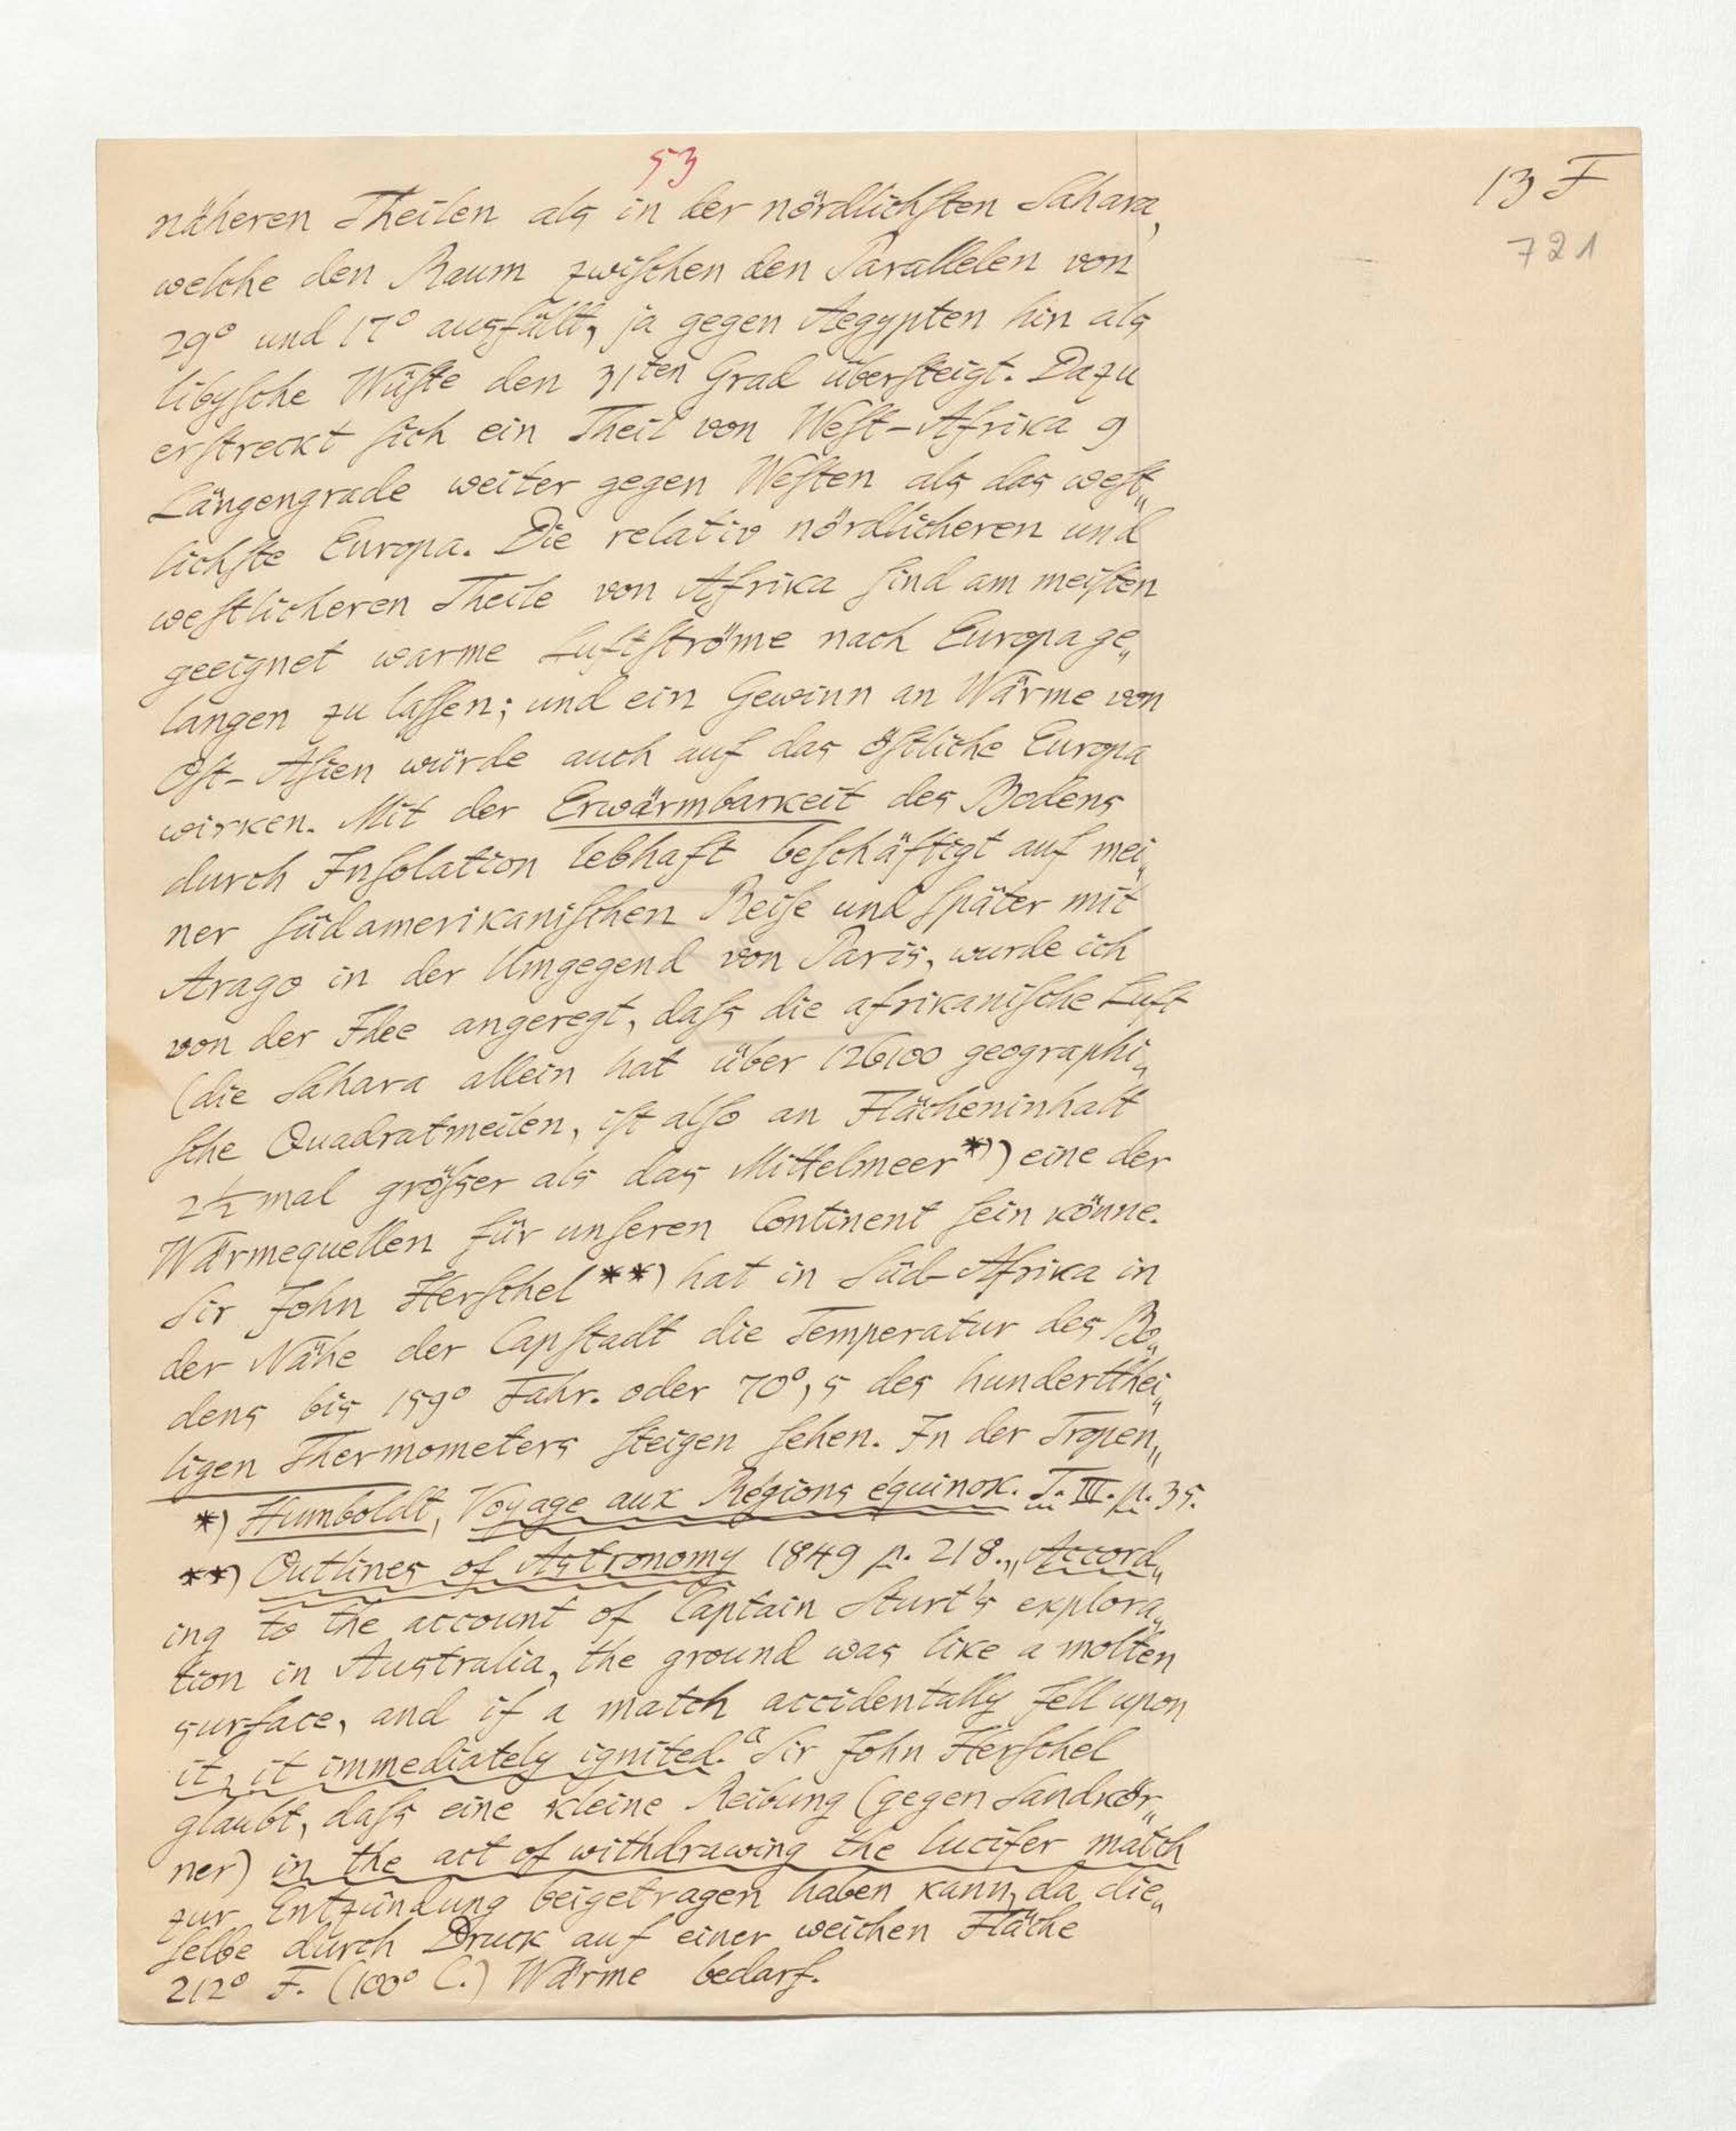 53
13 F
721
näheren Theilen als in der nördlichſten Sahara,
welche den Raum zwiſchen den Parallelen von
29° und 17° ausfüllt, ja gegen Aegypten hin als
libyſche Wüſte den 31ten Grad überſteigt. Dazu
erſtreckt ſich ein Theil von Weſt-Afrika 9
Längengrade weiter gegen Weſten als das weſt„
lichſte Europa. Die relativ nördlicheren und
weſtlicheren Theile von Afrika ſind am meiſten
geeignet warme Luftſtröme nach Europa ge„
langen zu laſſen; und ein Gewinn an Wärme von
Oſt-Aſien würde auch auf das öſtliche Europa
wirken. Mit der Erwärmbarkeit des Bodens
durch Inſolation lebhaft beſchäftigt auf mei„
ner ſüdamerikaniſchen Reiſe und ſpäter mit
Arago in der Umgegend von Paris, wurde ich
von der Idee angeregt, daſs die afrikaniſche Luft
(die Sahara allein hat über 126100 geographi„
ſche Quadratmeilen, iſt alſo an Flächeninhalt
2½ mal gröſser als das Mittelmeer*)) eine der
Wärmequellen für unſeren Continent ſein könne.
Sir John Herſchel**) hat in Süd-Afrika in
der Nähe der Capſtadt die Temperatur des Bo„
dens bis 159° Fahr. oder 70°,5 des hundertthei„
ligen Thermometers ſteigen ſehen. In der Tropen„
*) Humboldt, Voyage aux Régions équinox. T. III. p. 35.
**) Outlines of Astronomy 1849 p. 218. „Accord„
ing to the account of Captain Sturt's explora„
tion in Australia, the ground was like a molten
surface, and if a match accidentally fell upon
it, it immediately ignited.“ Sir John Herſchel
glaubt, daſs eine kleine Reibung (gegen Sandkör„
ner) in the act of withdrawing the lucifer match
zur Entzündung beigetragen haben kann, da die„
ſelbe durch Druck auf einer weichen Fläche
212° F. (100° C.) Wärme bedarf.